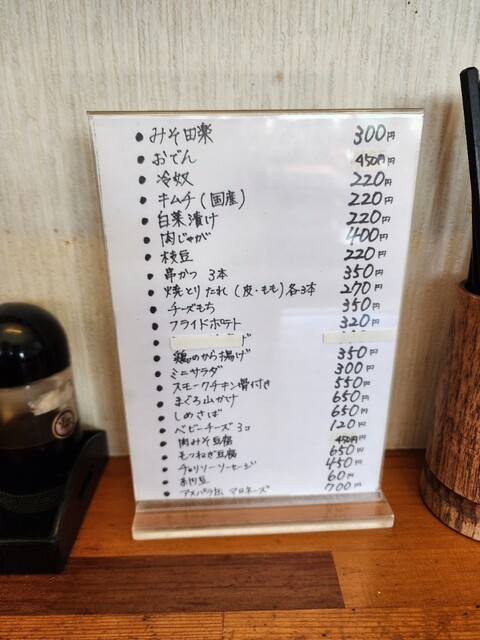 ● みそ田楽 300円
● おでん 450円
● 冷奴 220円
● キムチ(国産) 220円
● 白菜漬け 220円
● 肉じゃが 400円
● 枝豆 220円
● 串かつ 3本 350円
● 焼とりたれ(皮・もも)各3本 270円
● チーズもち 350円
● フライドポテト 320円
● 鶏のから揚げ 350円
● ミニサラダ 300円
● スモークチキン骨付き 550円
● まぐろ山かけ 650円
● しめさば 650円
● ベビーチーズ 3コ 120円
● 肉みそ豆腐 450円
● もつねぎ豆腐 650円
● チョリソーソーセージ 450円
● 60円
● アスパラ缶 マヨネーズ 700円